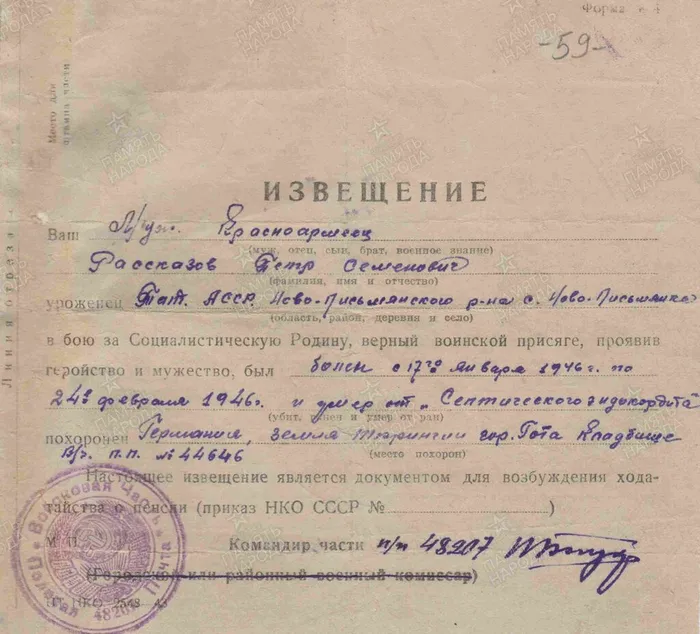 Форма № 4
-59-
Место для
штампа части
Линия отреза
ИЗВЕЩЕНИЕ
Ваш Муж. Красноармеец
(муж, отец, сын, брат, военное звание)
Рассказов Петр Семенович
(фамилия, имя и отчество)
уроженец Тат. АССР Ново-Письмянского р-на с. Ново-Письмянка
(область, район, деревня и село)
в бою за Социалистическую Родину, верный воинской присяге, проявив
геройство и мужество, был болен с 17го января 1946г. по
24е февраля 1946г. и умер от „Септического эндокордита"
(убит, ранен и умер от ран)
похоронен Германия, земля Тюрингии гор. Гота Кладбище
в/ч. п.п. № 44646 (место похорон)
Настоящее извещение является документом для возбуждения хода-
тайства о пенсии (приказ НКО СССР № )
М. П. Командир части п/п 48207
(Городской или районный военный комиссар)
Г. НКО 2548 43
Войсковая Часть * Полевая Почта 48207
ПАМЯТЬ НАРОДА